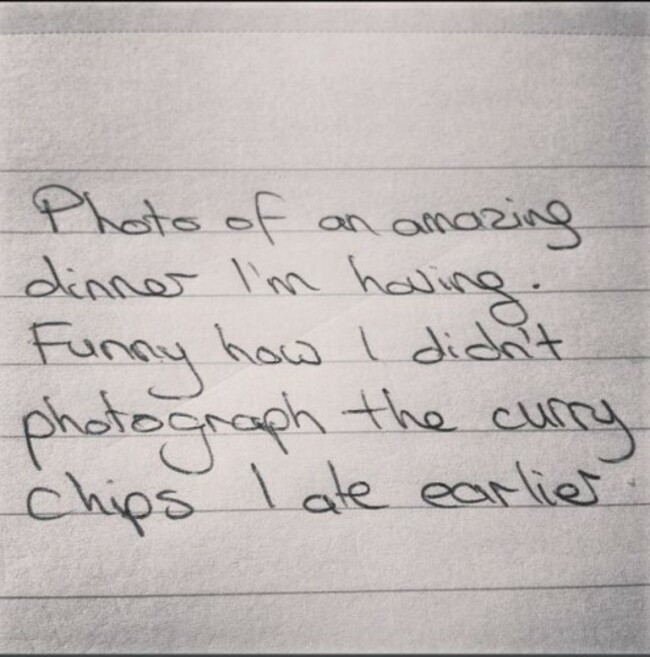 Photo of an amazing
dinner I'm having.
Funny how I didn't
photograph the curry
chips I ate earlier